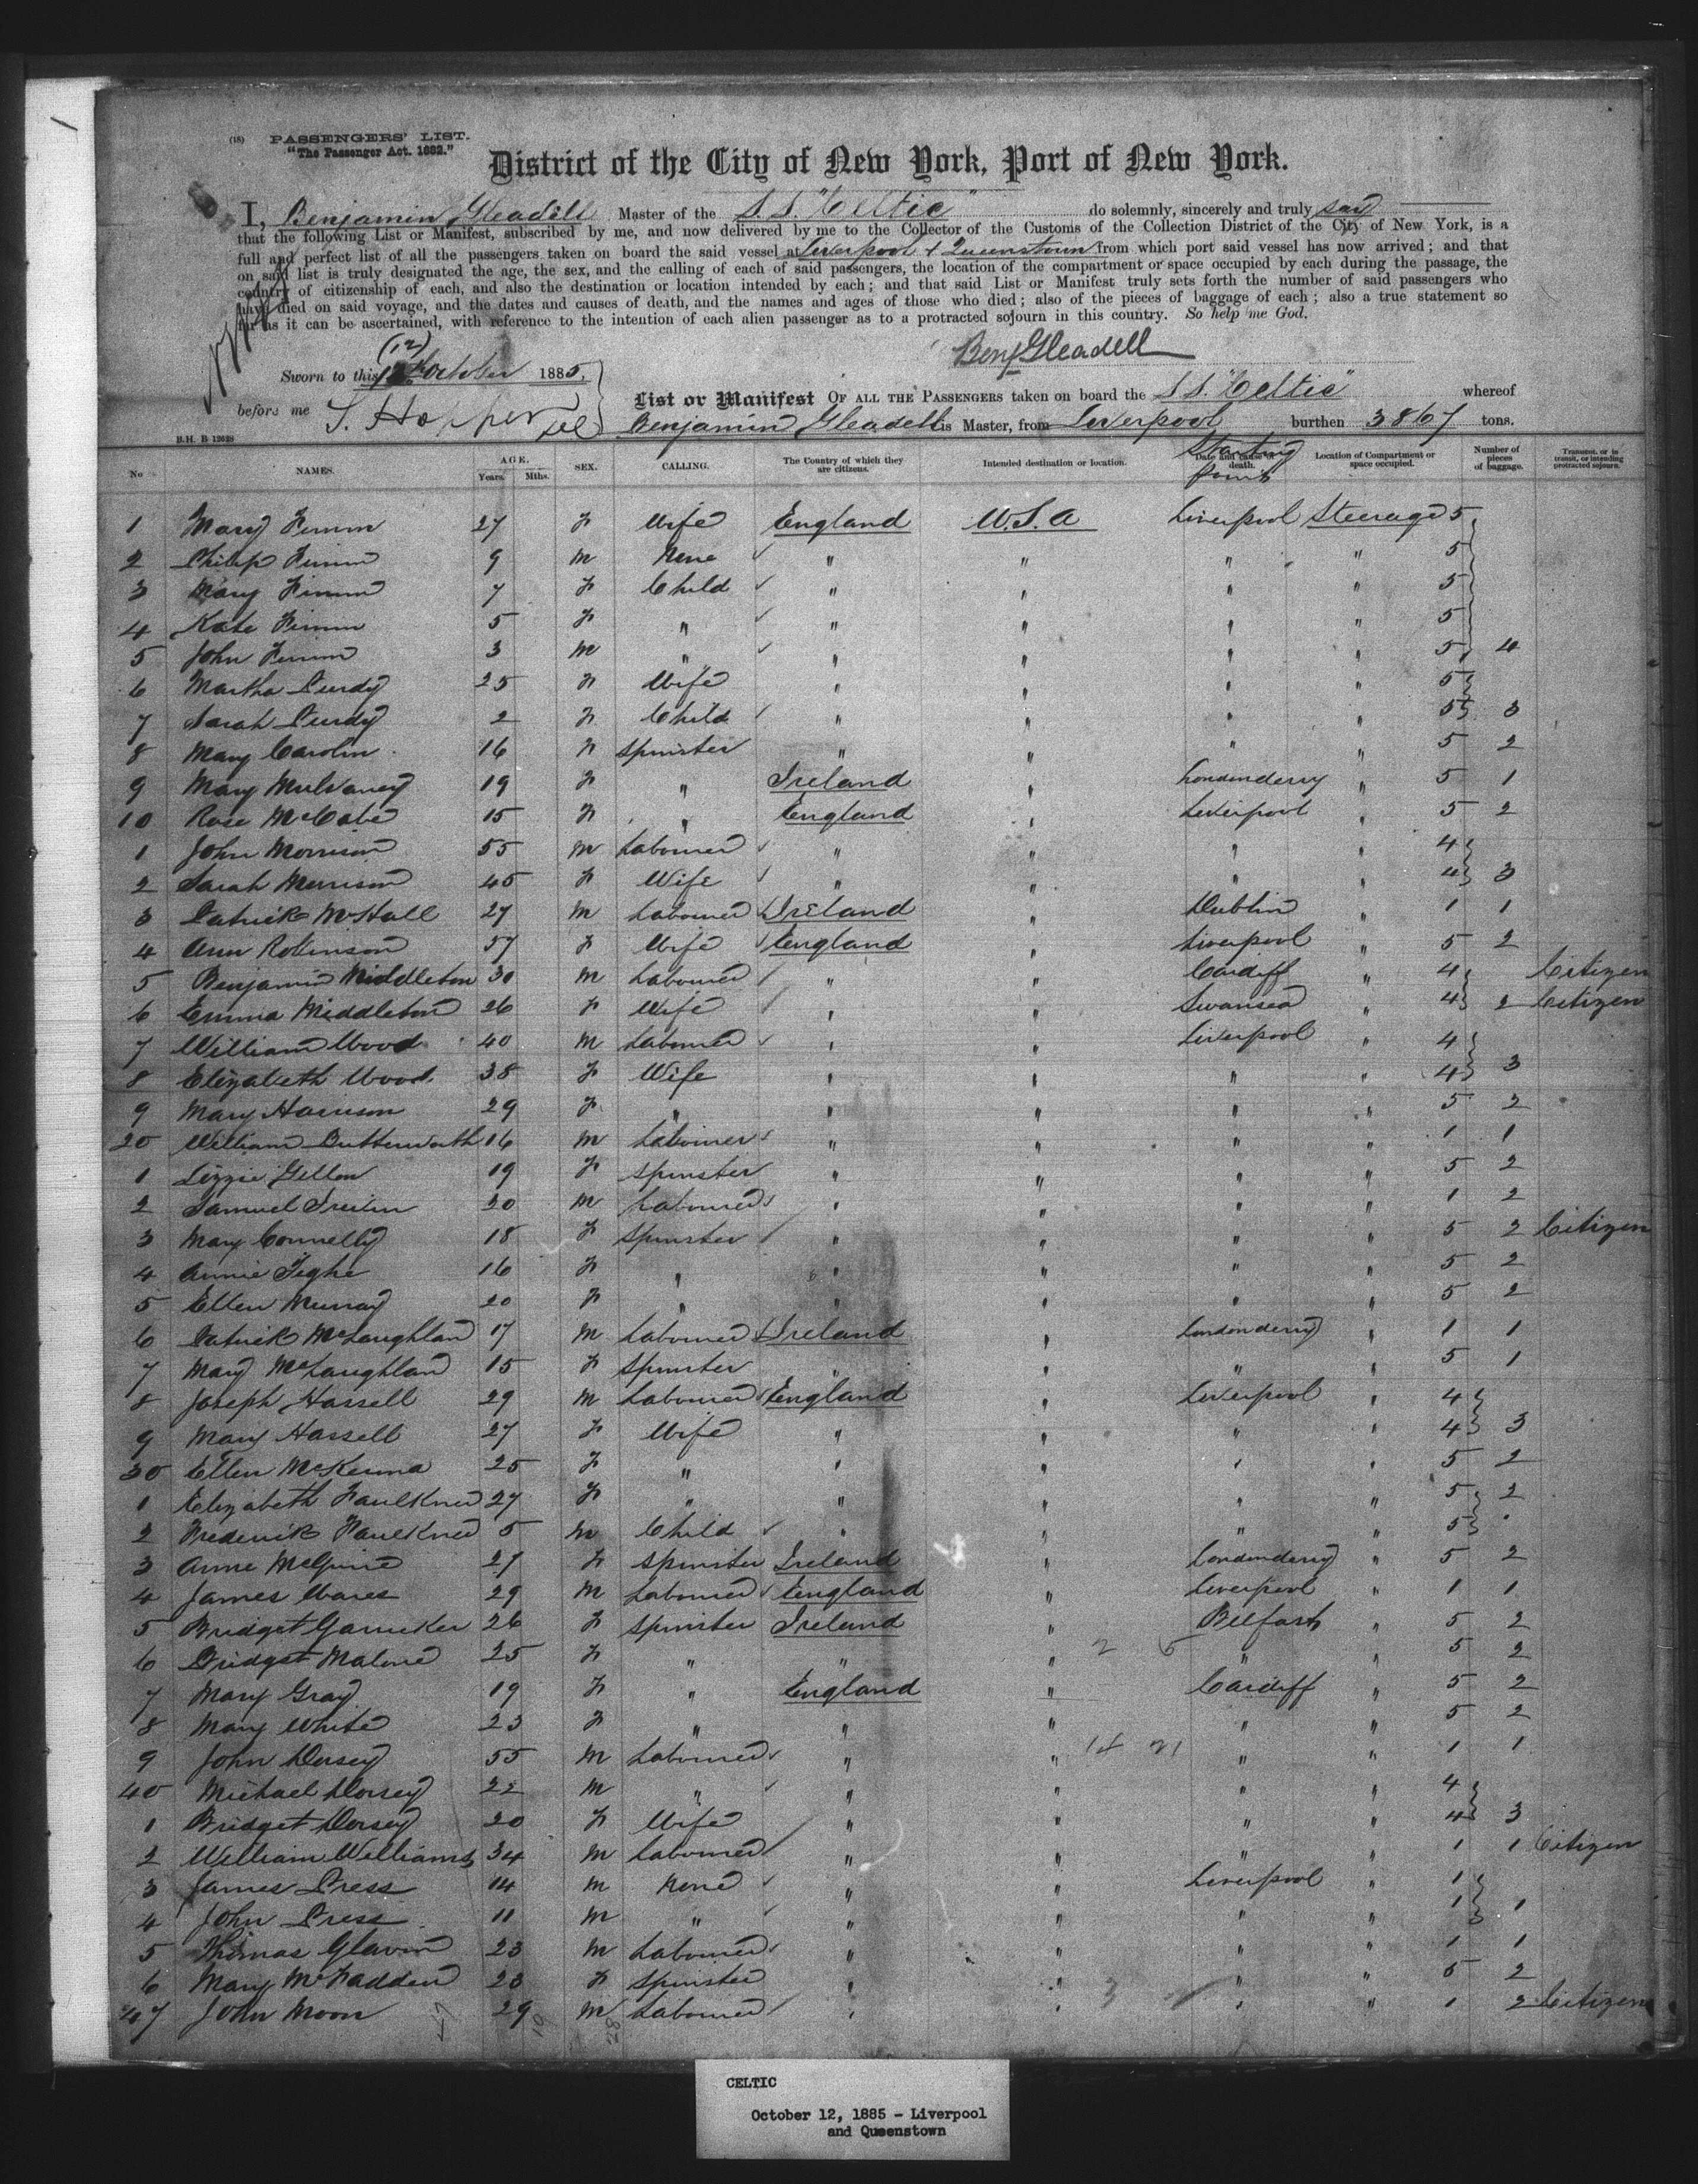 (18) PASSENGERS' LIST.
"The Passenger Act. 1882."
District of the City of New York, Port of New York.
I, Benjamin Gleadell Master of the S.S. "Celtic" do solemnly, sincerely and truly say
that the following List or Manifest, subscribed by me, and now delivered by me to the Collector of the Customs of the Collection District of the City of New York, is a
full and perfect list of all the passengers taken on board the said vessel at Liverpool & Queenstown from which port said vessel has now arrived; and that
on said list is truly designated the age, the sex, and the calling of each of said passengers, the location of the compartment or space occupied by each during the passage, the
country of citizenship of each, and also the destination or location intended by each; and that said List or Manifest truly sets forth the number of said passengers who
have died on said voyage, and the dates and causes of death, and the names and ages of those who died; also of the pieces of baggage of each; also a true statement so
far as it can be ascertained, with reference to the intention of each alien passenger as to a protracted sojourn in this country. So help me God.
Benj Gleadell
(12)
Sworn to this 12th October 1885.
before me S. Hopper
List or Manifest OF ALL THE PASSENGERS taken on board the S.S. "Celtic" whereof
Benjamin Gleadell is Master, from Liverpool burthen 3867 tons.
B.H. B 12628
No NAMES. AGE. Years. Mths. SEX. CALLING. The Country of which they are citizens. Intended destination or location. Date and cause of death. Starting point Location of Compartment or space occupied. Number of pieces of baggage. Transient, or in transit, or intending protracted sojourn.
1 Mary Fimm 27 F Wife England U.S.A Liverpool Steerage 5
2 Philip Fimm 9 M None " " " " 5
3 Mary Fimm 7 F Child " " " " 5
4 Kate Fimm 5 F " " " " " 5
5 John Fimm 3 M " " " " " 5 4
6 Martha Purdy 25 F Wife " " " " 5
7 Sarah Purdy 2 F Child " " " " 5 3
8 Mary Carolin 16 F Spinster " " " " 5 2
9 Mary Mulvaney 19 F " Ireland " Londonderry " 5 1
10 Rose McCabe 15 F " England " Liverpool " 5 2
1 John Morrison 55 M Labourer " " " " 4
2 Sarah Morrison 45 F Wife " " " " 4 3
3 Patrick McHall 27 M Labourer Ireland " Dublin " 1 1
4 Ann Robinson 57 F Wife England " Liverpool " 5 2
5 Benjamin Middleton 30 M Labourer " " Cardiff " 4 Citizen
6 Emma Middleton 26 F Wife " " Swansea " 4 2 Citizen
7 William Wood 40 M Labourer " " Liverpool " 4
8 Elizabeth Wood 38 F Wife " " " " 4 3
9 Mary Harrison 29 F " " " " " 5 2
20 William Butterworth 16 M Labourer " " " " 1 1
1 Lizzie Gillon 19 F Spinster " " " " 5 2
2 Samuel 20 M Labourer " " " " 1 2
3 Mary Connelly 18 F Spinster " " " " 5 2 Citizen
4 Annie Tighe 16 F " " " " " 5 2
5 Ellen Murray 20 F " " " " " 5 2
6 Patrick McLaughlan 17 M Labourer Ireland " Londonderry " 1 1
7 Mary McLaughlan 15 F Spinster " " " " 5 1
8 Joseph Hassell 29 M Labourer England " Liverpool " 4
9 Mary Hassell 27 F Wife " " " " 4 3
30 Ellen McKenna 25 F " " " " " 5 2
1 Elizabeth Faulkner 27 F " " " " " 5 2
2 Frederick Faulkner 5 M Child " " " " 5 "
3 Anne McGuire 27 F Spinster Ireland " Londonderry " 5 2
4 James Wares 29 M Labourer England " Liverpool " 1 1
5 Bridget 26 F Spinster Ireland " Belfast " 5 2
6 Bridget Malone 25 F " " " " " 5 2
7 Mary Gray 19 F " England " Cardiff " 5 2
8 Mary White 23 F " " " " " 5 2
9 John Dorsey 55 M Labourer " " " " 1 1
40 Michael Dorsey 22 M " " " " " 4
1 Bridget Dorsey 20 F Wife " " " " 4 3
2 William Williams 34 M Labourer " " " " 1 1 Citizen
3 James Press 14 M None " " Liverpool " 1
4 John Press 11 M " " " " " 1 1
5 Thomas Glavin 23 M Labourer " " " " 1 1
6 Mary McFadden 23 F Spinster " " " " 5 2
47 John Moon 29 M Labourer " " " " 1 2 Citizen
CELTIC
October 12, 1885 - Liverpool
and Queenstown